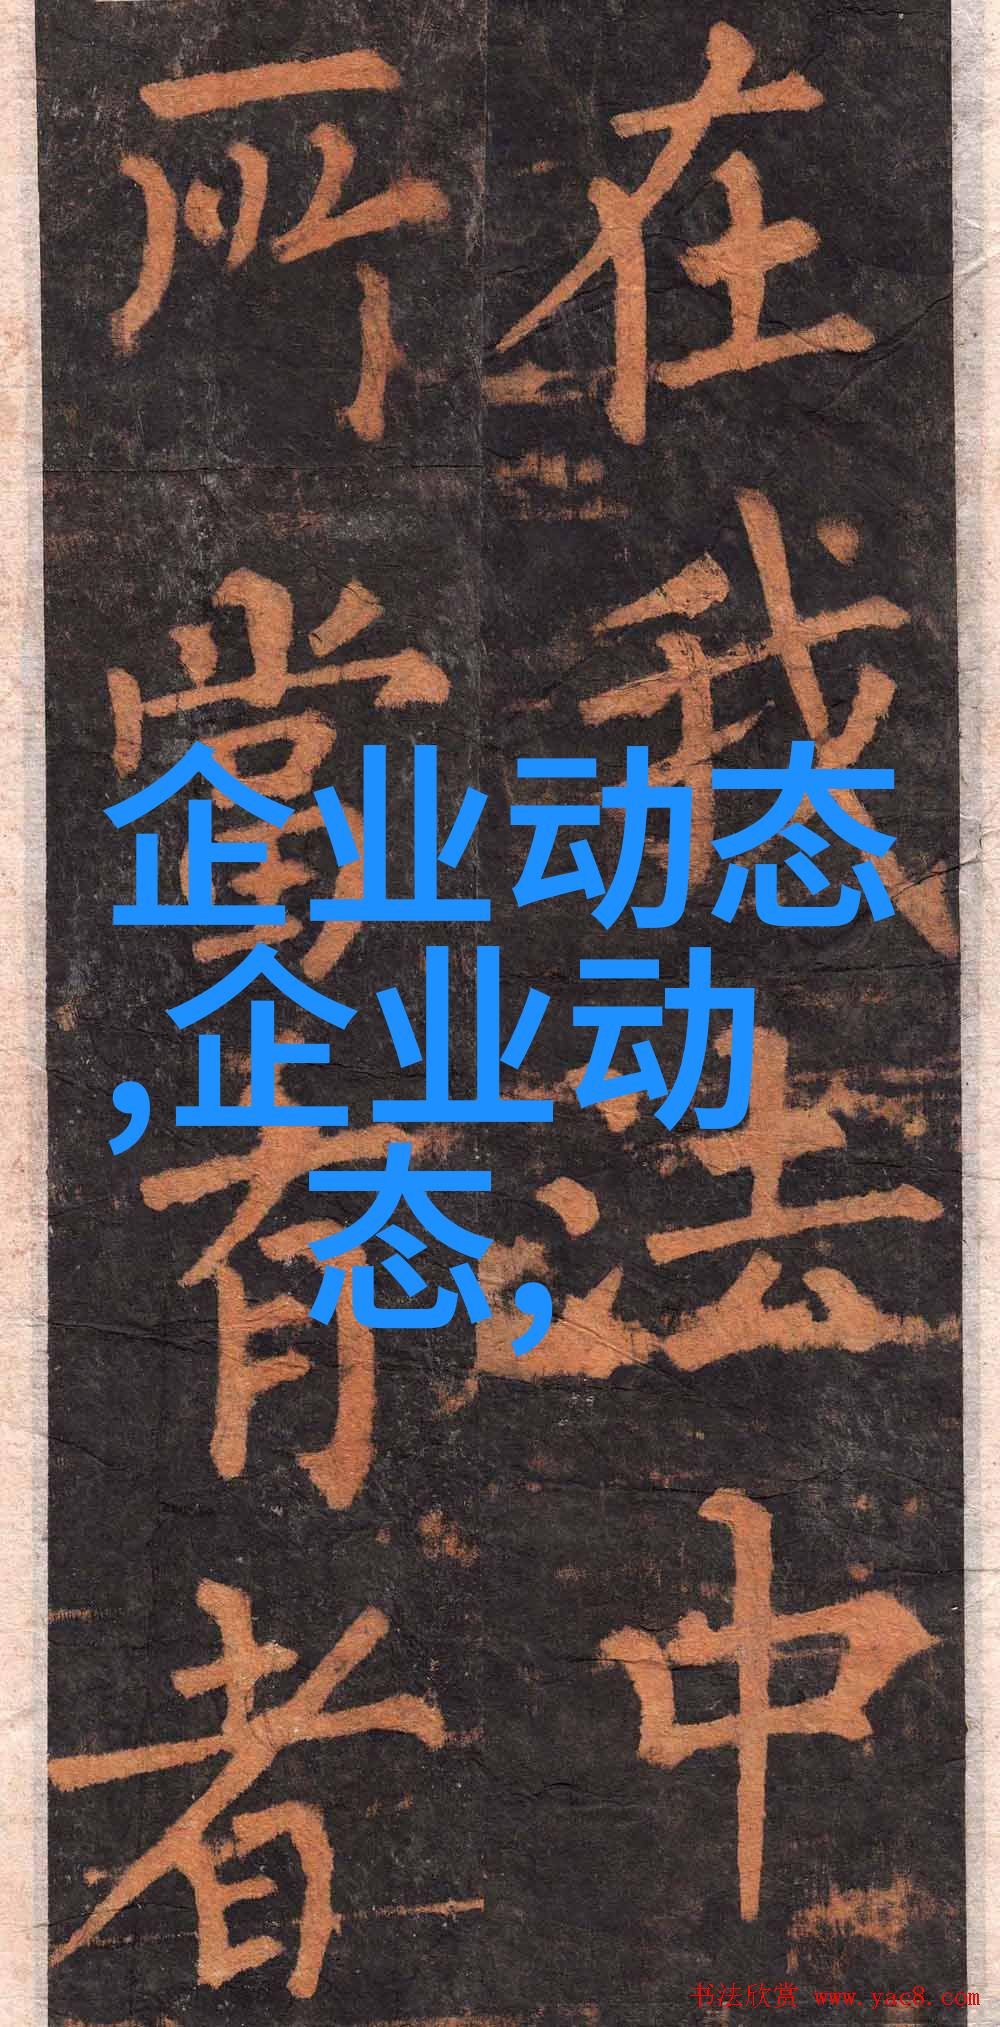 在我法中
所當有者
企业动态
,企业动
态,
书法欣赏 www.yac8.com